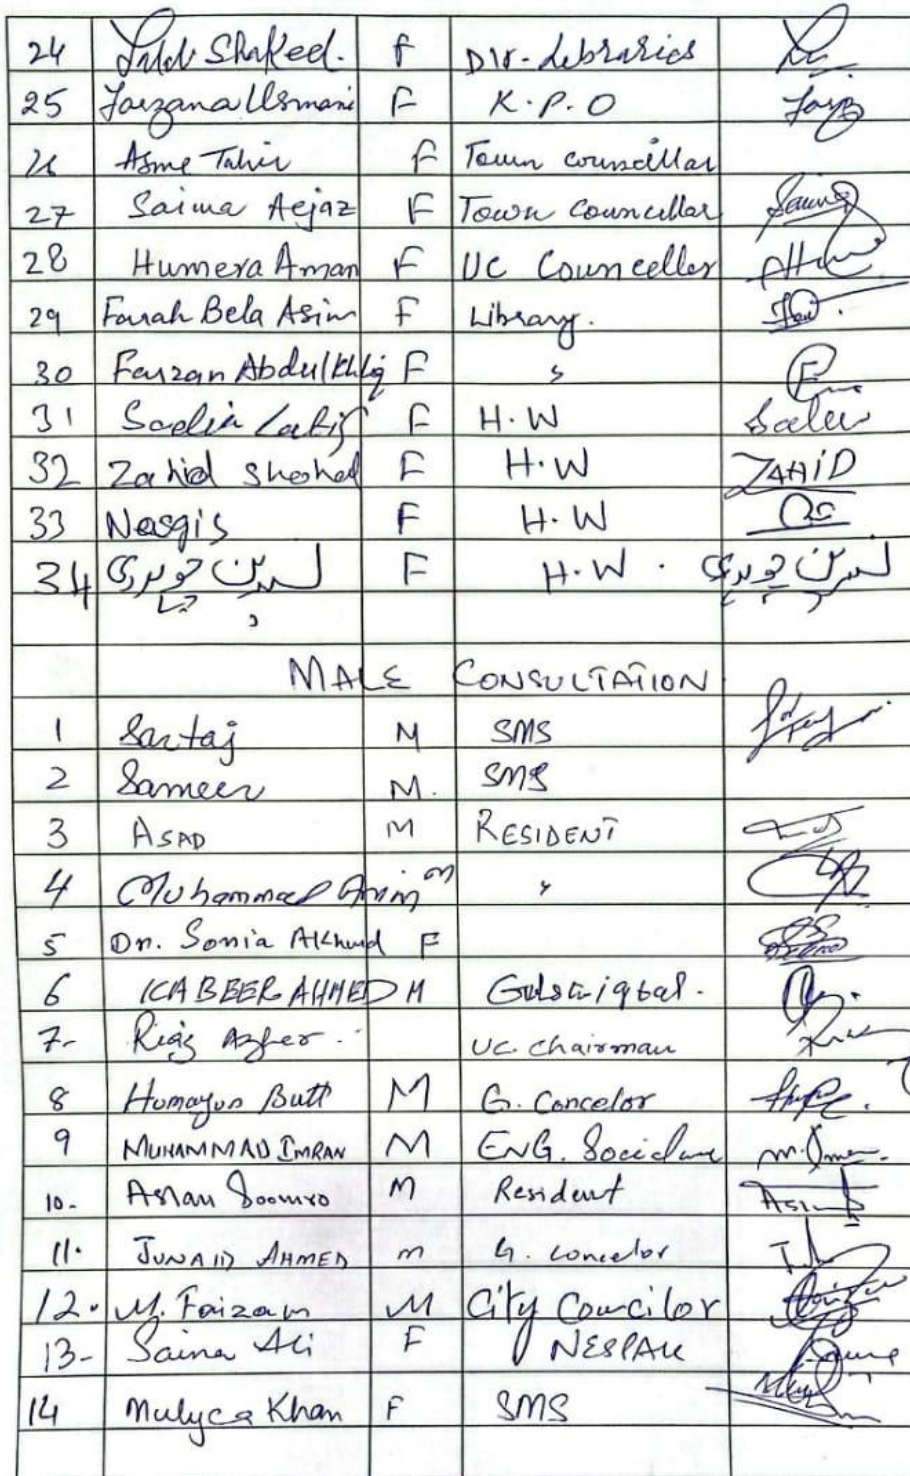 24 Shakeel. F Dir. Libraries
25 Farzana Usmani F K.P.O Farz
26 Asme Tahir F Town councillar
27 Saima Aejaz F Town Councellar Saima
28 Humera Aman F UC Counceller
29 Farah Bela Asim F Library.
30 Farzan Abdulkhliq F "
31 Sadia Latif F H.W Sadia
32 Zahid Shohal F H.W ZAHiD
33 Nasgis F H.W
34 نسرین چوہدری F H.W. نسرین چوہدری
MALE CONSULTATION
1 Sartaj M SMS
2 Sameer M. SMS
3 ASAD M RESIDENT
4 Muhammad Amin M "
5 Dr. Sonia Akhund F
6 KABEER AHMED M Gulshiqbal.
7- Riaz Azher. UC. Chairman
8 Homayun Butt M G. Concelor
9 MUHAMMAD IMRAN M ENG. m. Imran.
10. Aslan Soomro M Resident
11. JUNAID AHMED m G. concelor
12. M. Faizan M City Councilor
13- Saina Ali F NESPAK
14 Mulyca Khan F SMS